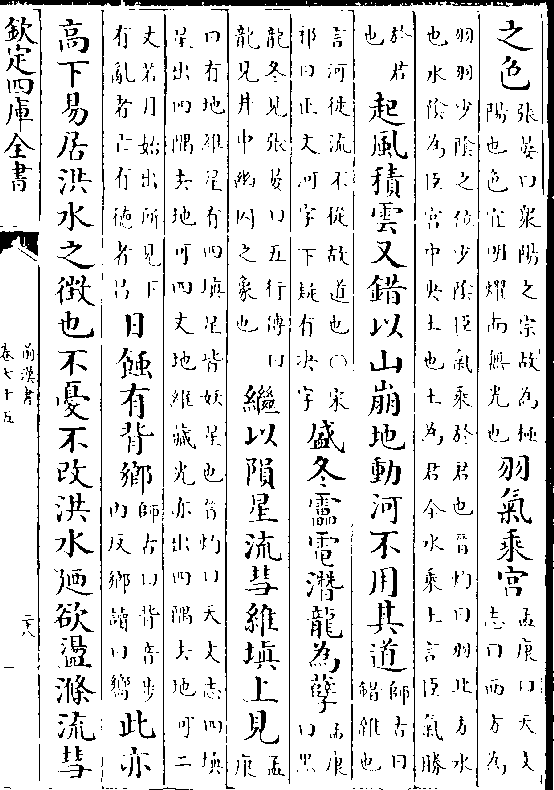 之色張晏曰衆陽之宗故為極陽也色宜明耀而無光也羽氣乘宮孟康曰天文志曰西方為
羽羽少陰之位少陰臣氣乘於君也晉灼曰羽北方水也水陰為臣宮中央土也土為君今水乘土言臣氣勝
於君也起風積雲又錯以山崩地動河不用其道師古曰錯雜也
言河徙流不從故道也○宋祁曰正文河字下疑有決字盛冬靁電潛龍為孽孟康曰黑
龍冬見張晏曰五行傳曰龍見井中幽囚之象也繼以隕星流彗維塡上見孟康
曰有地維星有四塡星皆妖星也晉灼曰天文志四塡星出四隅去地可四丈地維藏光亦出四隅去地可二
丈若月始出所見下有亂者亡有德者昌日蝕有背鄉師古曰背音步內反鄉讀曰嚮此亦
高下易居洪水之徵也不憂不改洪水廼欲盪滌流彗
欽定四庫全書
前漢書
卷七十五
二十八